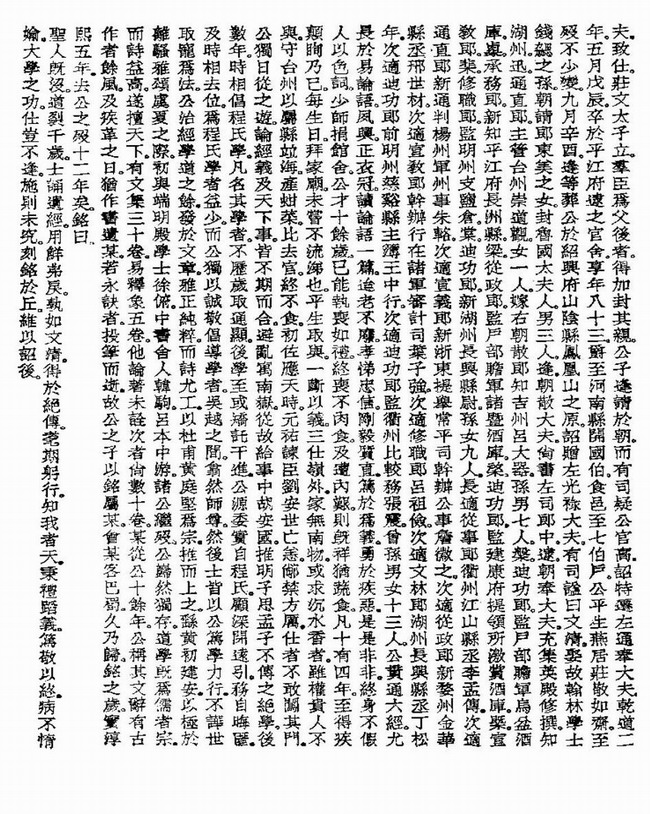 夫致仕莊文太子立羣臣爲父後者得加封其親公子逢請於朝而有司疑公官高詔特遷左通奉大夫乾道二
年五月戊辰卒於平江府逮之官舍享年八十三爵至河南縣開國伯食邑至七伯戶公平生燕居莊敬如齋至
歿不少變九月辛酉逢等葬公於紹興府山陰縣鳳凰山之原詔贈左光祿大夫有司諡曰文清娶故翰林學士
錢勰之孫朝請郎東美之女封魯國太夫人男三人逢朝散大夫尚書左司郎中逮朝奉大夫充集英殿修撰知
湖州迅通直郎主管台州崇道觀女一人嫁右朝散郎知吉州呂大器孫男七人槃迪功郎監戶部贍軍烏盆酒
庫槀承務郎新知平江府長洲縣梁從政郎監戶部贍軍諸暨酒庫棨迪功郎監建康府提領所激賞酒庫槩宣
敎郎棐修職郎監明州支鹽倉棠迪功郎新湖州長興縣尉孫女九人長適從事郎衢州江山縣丞李孟傳次適
通直郎新通判楊州軍州事朱輅次適宣義郎新浙東提舉常平司幹辦公事詹徽之次適從政郎新婺州金華
縣丞邢世材次適宣敎郎幹辦行在諸軍審計司葉子強次適修職郎呂祖儉次適文林郎湖州長興縣丞丁松
年次適迪功郎前明州慈谿縣主簿王中行次適迪功郎監衢州比較務張震曾孫男女十三人公貫通大經尤
長於易論語夙興正衣冠讀論語一篇迨老不廢孝悌忠信剛毅質直篤於爲義勇於疾惡是是非非終身不假
人以色詞少師捐館舍公才十餘歲已能執喪如禮終喪不肉食及遭內艱則旣祥猶蔬食凡十有四年至得疾
顛眴乃已每生日拜家廟未嘗不流涕也平生取與一斷以義三仕嶺外家無南物或求沉水香者雖權貴人不
與守台州以屬縣竝海產蚶菜比去官終不食初佐應天時元祐諫臣劉安世亡恙黨禁方厲仕者不敢闖其門
公獨日從之遊論經義及天下事皆不期而合避亂寓南嶽從故給事中胡安國推明子思孟子不傳之絕學後
數年時相倡程氏學凡名其學者不歷歲取通顯後學至或矯託干進公源委實自程氏顧深閉遠引務自晦匿
及時相去位爲程氏學者益少而公獨以誠敬倡導學者吳越之閒翕然師尊然後士皆以公篤學力行不譁世
取寵爲法公治經學道之餘發於文章雅正純粹而詩尤工以杜甫黃庭堅爲宗推而上之繇黃初建安以極於
離騷雅頌虞夏之際初與端明殿學士徐俯中書舍人韓駒呂本中游諸公繼歿公巋然獨存道學旣爲儒者宗
而詩益高遂擅天下有文集三十卷易釋象五卷他論著未詮次者尚數十卷某從公十餘年公稱其文辭有古
作者餘風及疾革之日猶作書遺某若永訣者投筆而逝故公之子以銘屬某會某客巴蜀久乃歸銘之歲實淳
熙五年去公之歿十二年矣銘曰
聖人旣沒道裂千歲士誦遺經用鮮弗戾孰如文清得於絕傳耄期躬行知我者天秉禮蹈義篤敬以終病不惰
媮大學之功仕豈不逢施則未究刻銘於丘維以詔後